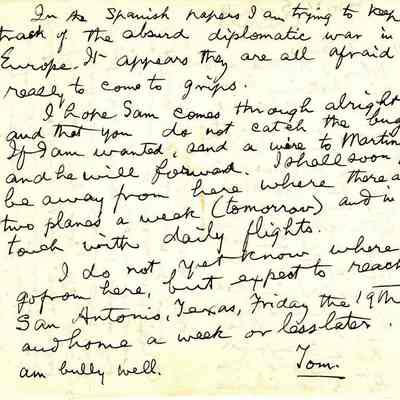 In the Spanish papers I am trying to keep
track of the absurd diplomatic war in
Europe. It appears they are all afraid
really to come to grips.
I hope Sam comes through alright
and that you do not catch the bug
If I am wanted, send a wire to Martin
and he will forward. I shall soon
be away from here where there a
two planes a week (tomorrow) and in
touch with daily flights.
I do not yet know where
go from here, but expect to reach
San Antonio, Texas, Friday the 19th
and home a week or less later.
am bully well.
Tom.